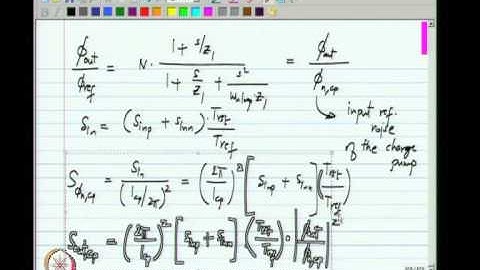 ϕout/ϕref = N · (1 + s/z1)/(1 + s/z1 + s²/(ωu,loop·z1)) = ϕout/ϕn,cp
input ref.
noise
of the charge
pump
SIn = (SInp + SInn) · Trst/Tref
Sϕn,cp = SIn/(Icp/2π)² = (2π/Icp)² [SInp + SInn] (Trst/Tref)
Sout,cp = (2π/Icp)² [SInp + SInn] (Trst/Tref) · |ϕout/ϕn,cp|²